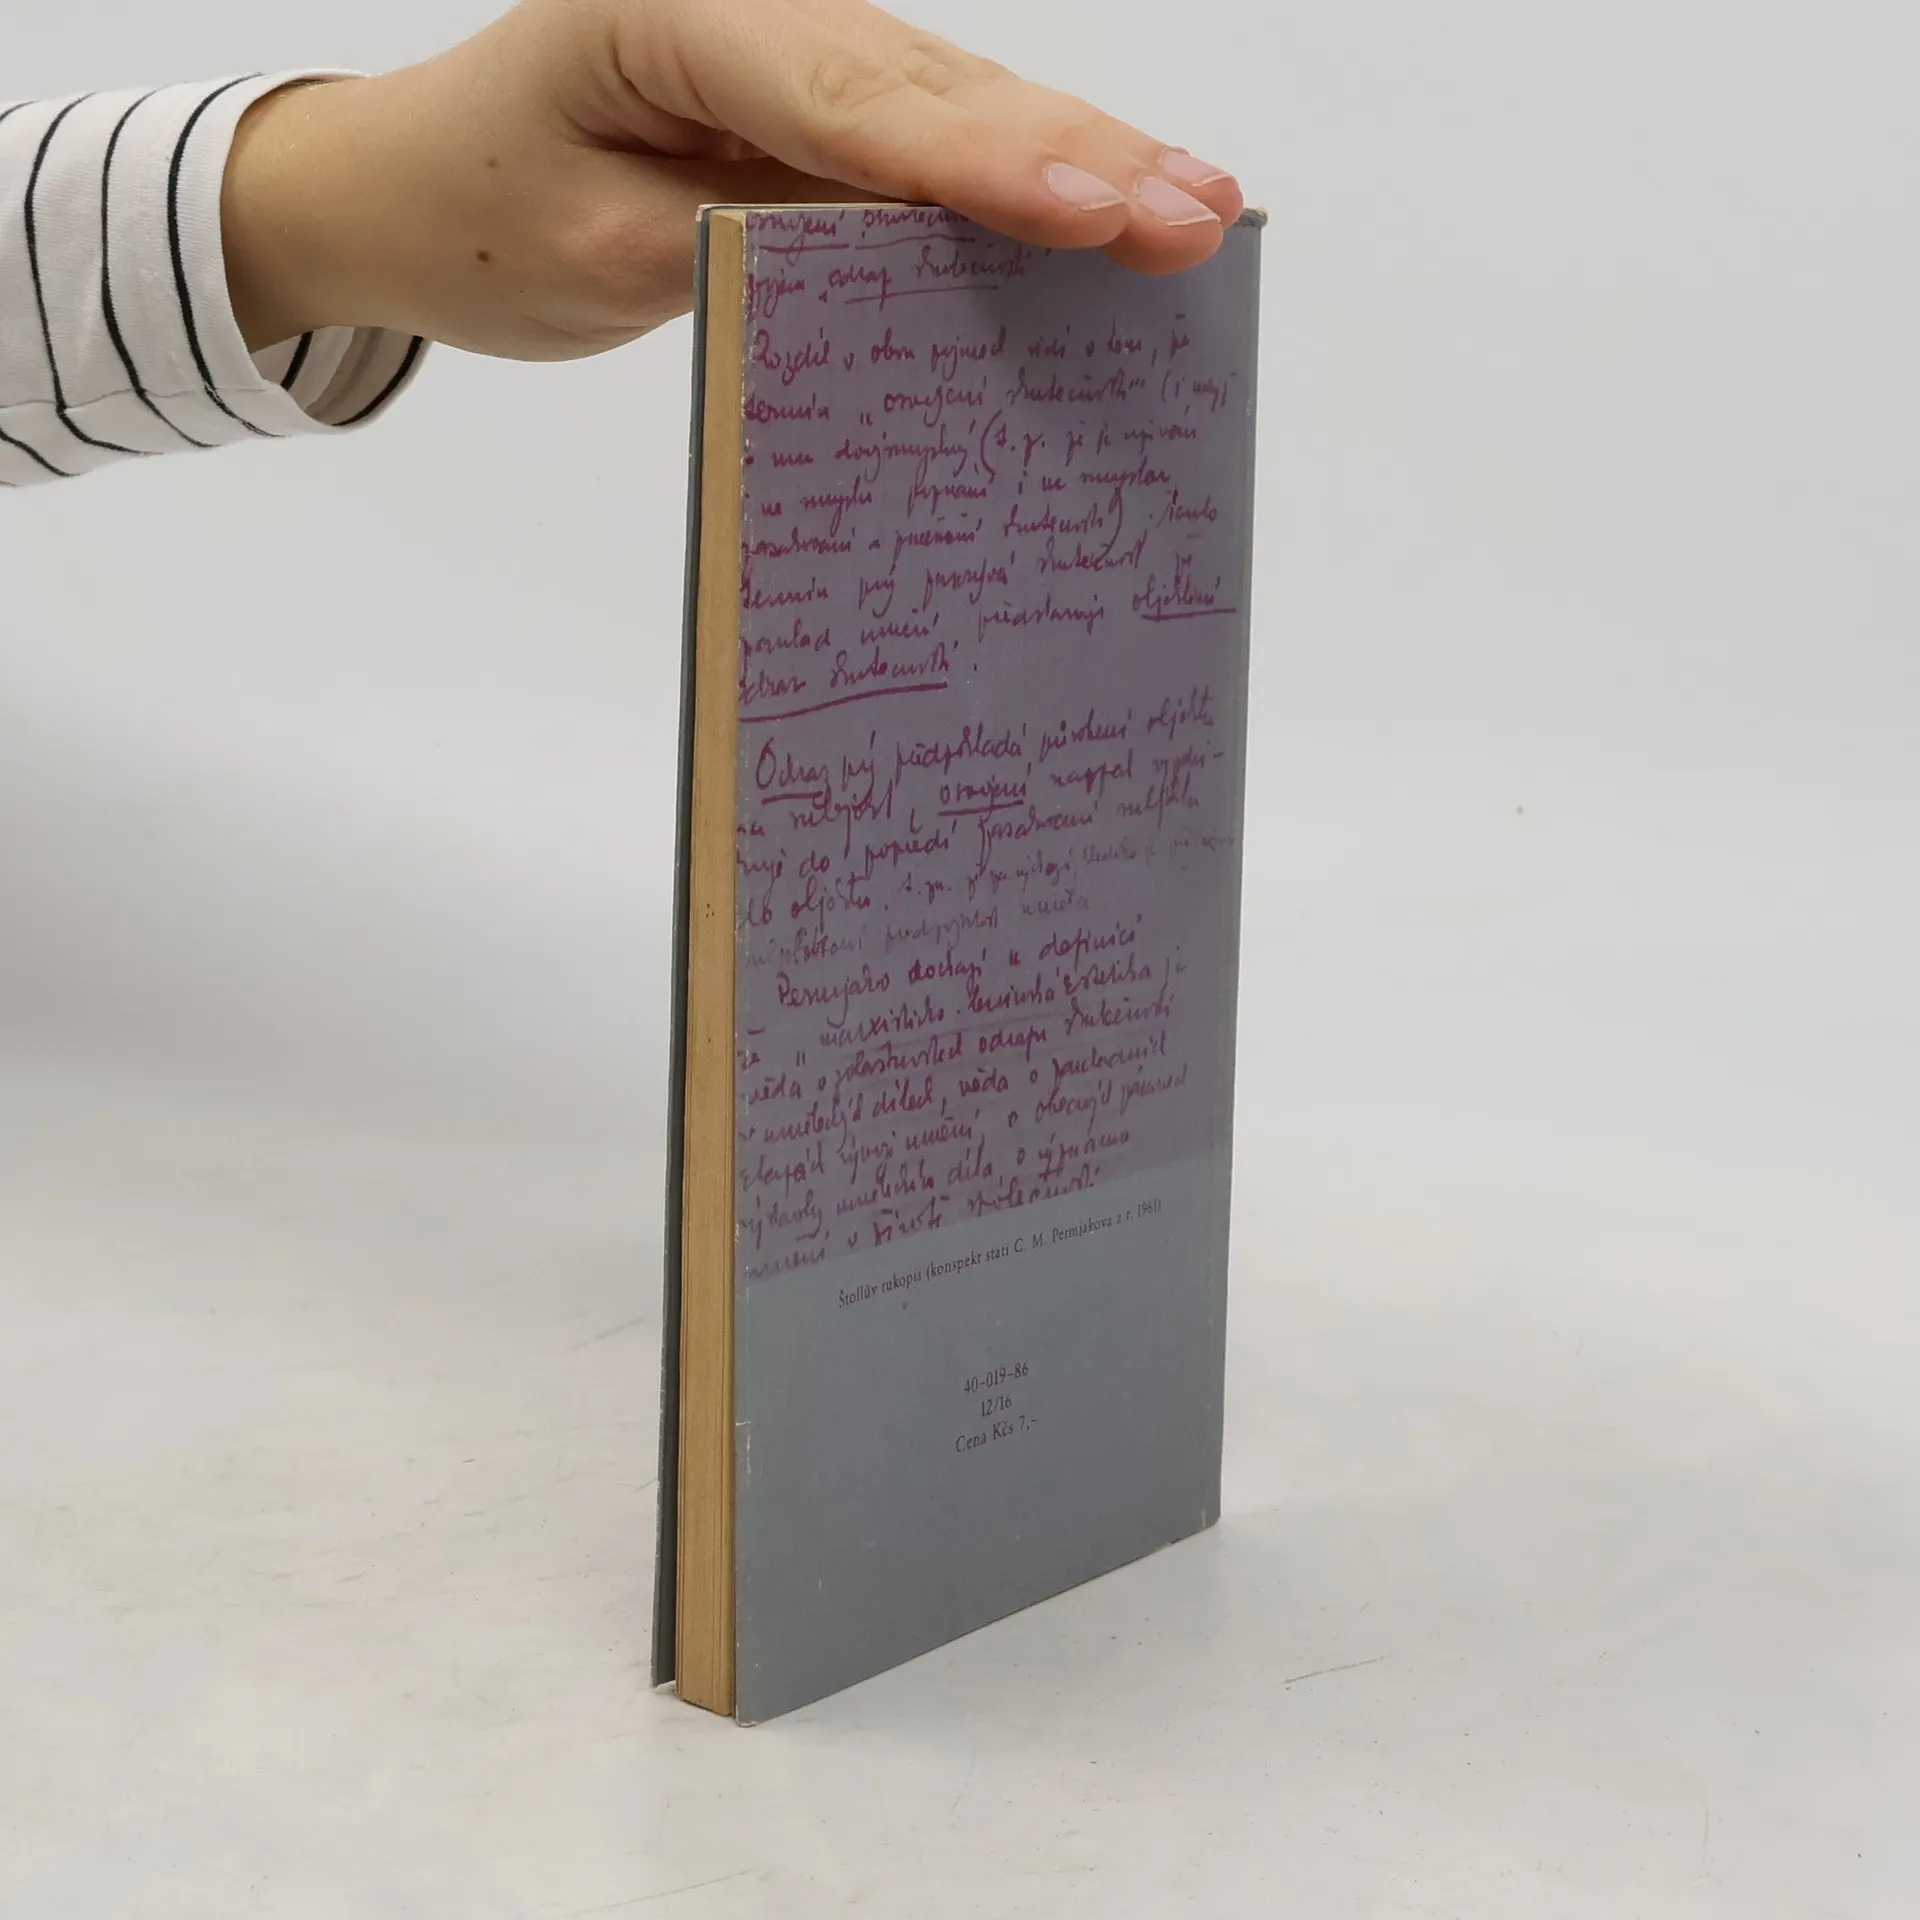 osvojení skutečnosti
pojem „odraz skutečnosti"
Rozdíl v obou pojmech vidí v tom, že
termín „osvojení skutečnosti" (i
dvojsmyslný (t. j. že je užíván
ve smyslu poznání i ve smyslu
zasahování a přeměnění skutečnosti). Tento
termín prý skutečnost
umění, představuje objektivní
odraz skutečnosti.
Odraz prý předpokládá působení objektu
na subjekt, osvojení
do popředí zasahování subjektu
do objektu.
umělce
Permjakov dochází k definici
že „marxisticko-leninská estetika je
věda o zvláštnostech odrazu skutečnosti
v uměleckých dílech, věda o
etapách vývoje umění, o obecných
výstavby uměleckého díla, o významu
umění v životě společnosti
Štollův rukopis (konspekt stati C. M. Permjakova z r. 1961)
40-019-86
12/16
Cena Kčs 7,-